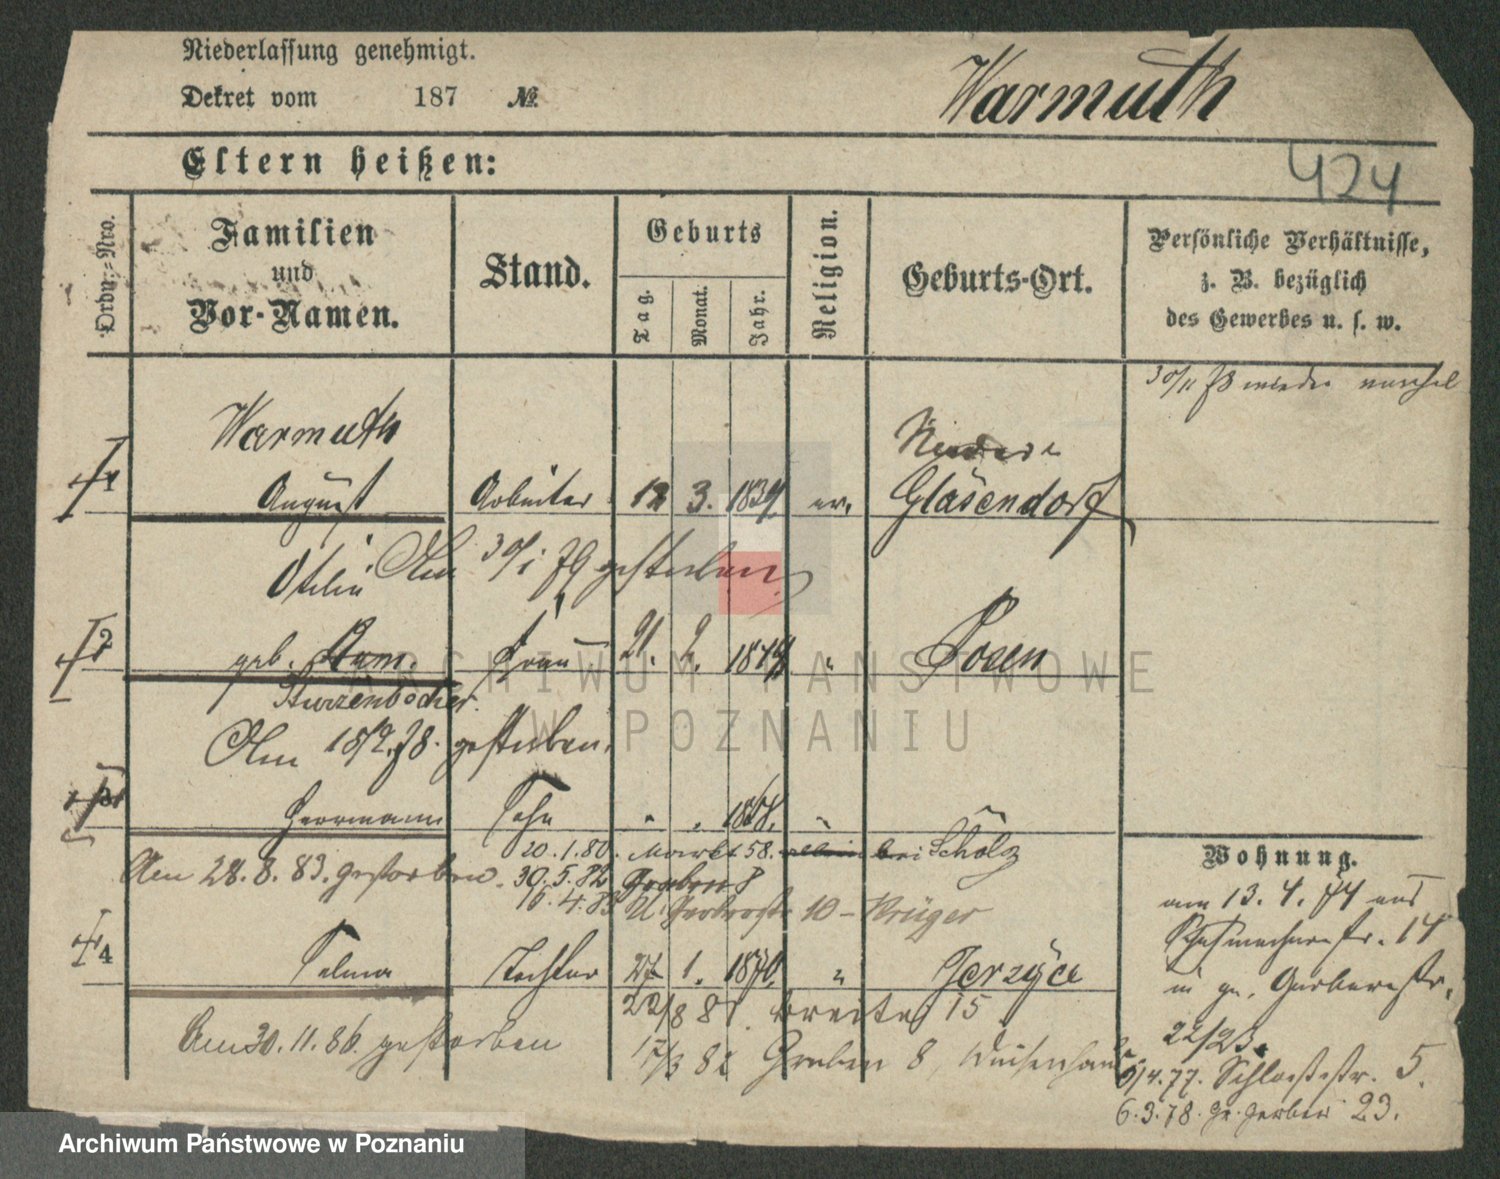 Niederlassung genehmigt.
Dekret vom 187 №
Warmuth
424
Eltern heißen:
Ordn.-Nro.
Familien
und
Vor-Namen.
Stand.
Geburts
Tag.
Monat.
Jahr.
Religion.
Geburts-Ort.
Persönliche Verhältnisse,
z. B. bezüglich
des Gewerbes u. s. w.
30/11 73 wieder
Warmuth
1 August Arbeiter 12 3. 1839. ev. Glasendorf
Am 30/1 79 gestorben
2 geb. Frau 21. 2. 1844 " Posen
Sturzenbecher.
Am 18/2. 78. gestorben.
3 Herrmann Sohn " . 1868. "
20. 1. 80. Markt 58. bei Scholz
Am 28. 8. 83. gestorben. 30. 5. 82 Graben 8
16. 4. 83 10 - Krüger
4 Selma Tochter 27 1. 1870. " Jerzyce
22/8 81. Breite 15
Am 30. 11. 86. gestorben
17/3 82 Graben 8, Waisenhaus
Wohnung.
am 13. 4. 74 aus
Schuhmacherstr. 14
in gr. Gerberstr.
22/23.
6/4. 77. Schlossstr. 5.
6. 3. 78. gr. Gerber 23.
ARCHIWUM PAŃSTWOWE
W POZNANIU
Archiwum Państwowe w Poznaniu